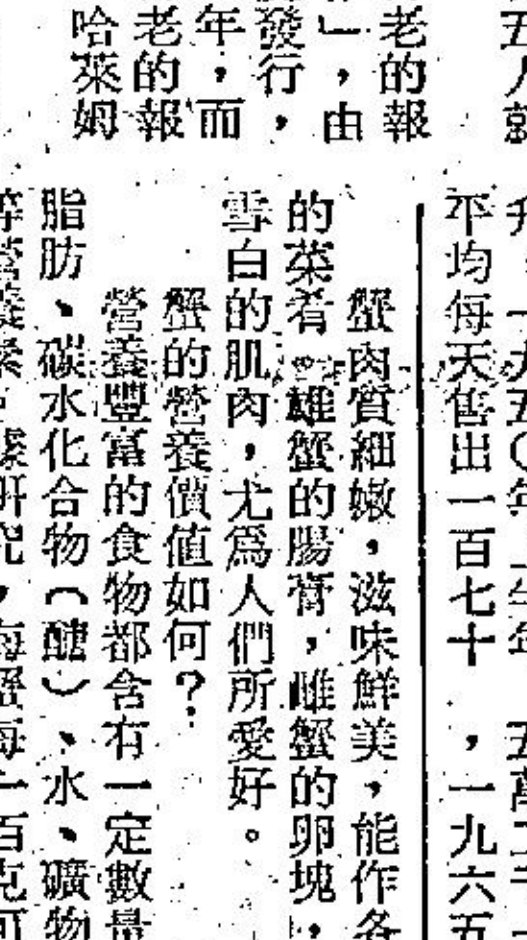 五人就
老的報
」，由
發行，
年，而
老的報
哈萊姆
升，一九五〇年上半年　五萬
平均每天售出一百七十　，一九六五
蟹肉質細嫩，滋味鮮美，能作各
的菜肴。雄蟹的腸膏，雌蟹的卵塊，
雪白的肌肉，尤爲人們所愛好。
蟹的營養價值如何？
營養豐富的食物都含有一定數量
脂肪、碳水化合物（醣）、水、礦物
等營養素。據研究，海蟹每一百克可